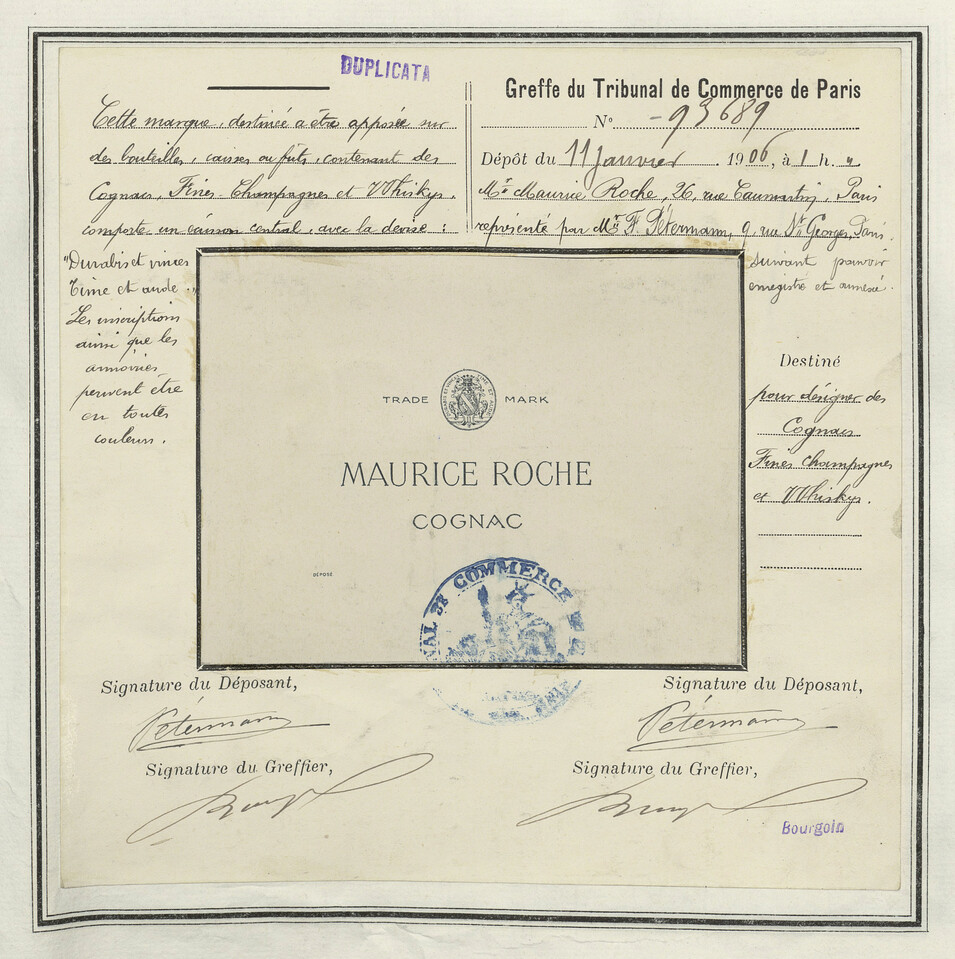 DUPLICATA
Cette marque, destinée a être apposée sur
des bouteilles, caisses ou fûts, contenant des
Cognacs, Fines Champagnes et Whiskys,
comporte un écusson central, avec la devise :
"Durabis et vinces
Time et aude".
Les inscriptions
ainsi que les
armoiries
peuvent être
en toutes
couleurs.
Greffe du Tribunal de Commerce de Paris
N° 93689
Dépôt du 11 Janvier 1906, à 1 h. "
Mr Maurice Roche, 26, rue Caumartin, Paris
représenté par Mr F. Pétermann, 9 rue St Georges, Paris
suivant pouvoir
enregistré et annexé.
Destiné
pour désigner des
Cognacs
Fines Champagnes
et Whiskys.
TRADE MARK
MAURICE ROCHE
COGNAC
DÉPOSÉ
COMMERCE
Signature du Déposant,
Pétermann
Signature du Greffier,
Signature du Déposant,
Pétermann
Signature du Greffier,
Bourgoin